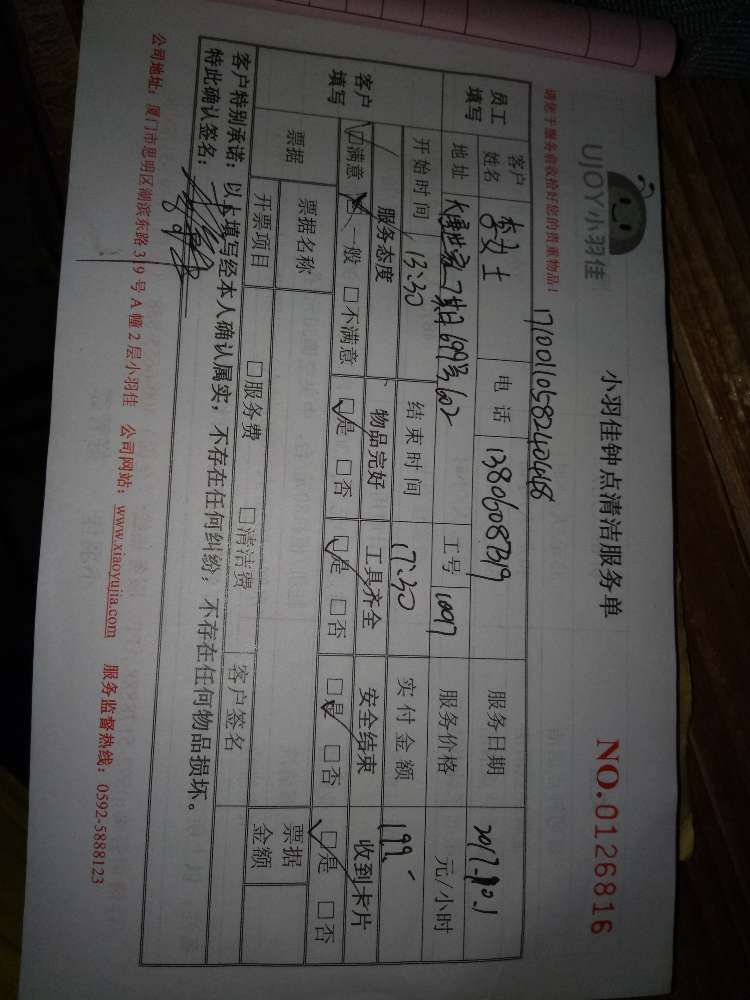 UJOY小羽佳
小羽佳钟点清洁服务单
NO.0126816
请您于服务前收拾好您的贵重物品!
17100110582404448
员工填写 客户姓名 李女士 电话 13806087319 服务日期 2017.10.1
地址 7期 699号602 工号 1097 服务价格 元/小时
客户填写 开始时间 13:30 结束时间 17:30 实付金额 199.
服务态度 物品完好 工具齐全 安全结束 收到卡片
☑满意 ☑一般 □不满意 ☑是 □否 ☑是 □否 ☑是 □否 ☑是 □否
票据 票据名称 票据金额
开票项目 □服务费 □清洁费 客户签名
客户特别承诺：以上填写经本人确认属实，不存在任何纠纷，不存在任何物品损坏。
特此确认签名：
公司地址：厦门市思明区湖滨东路319号A幢2层小羽佳 公司网站：www.xiaoyujia.com 服务监督热线：0592-5888123